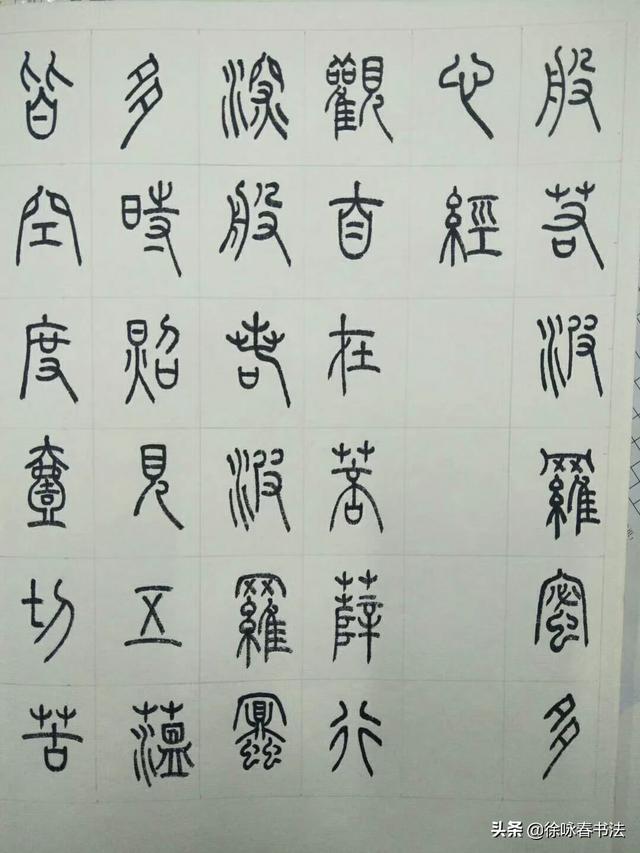 般若波羅蜜多
心經
觀自在菩薩行
深般若波羅蜜
多時照見五蘊
皆空度壹切苦
头条 @徐咏春书法